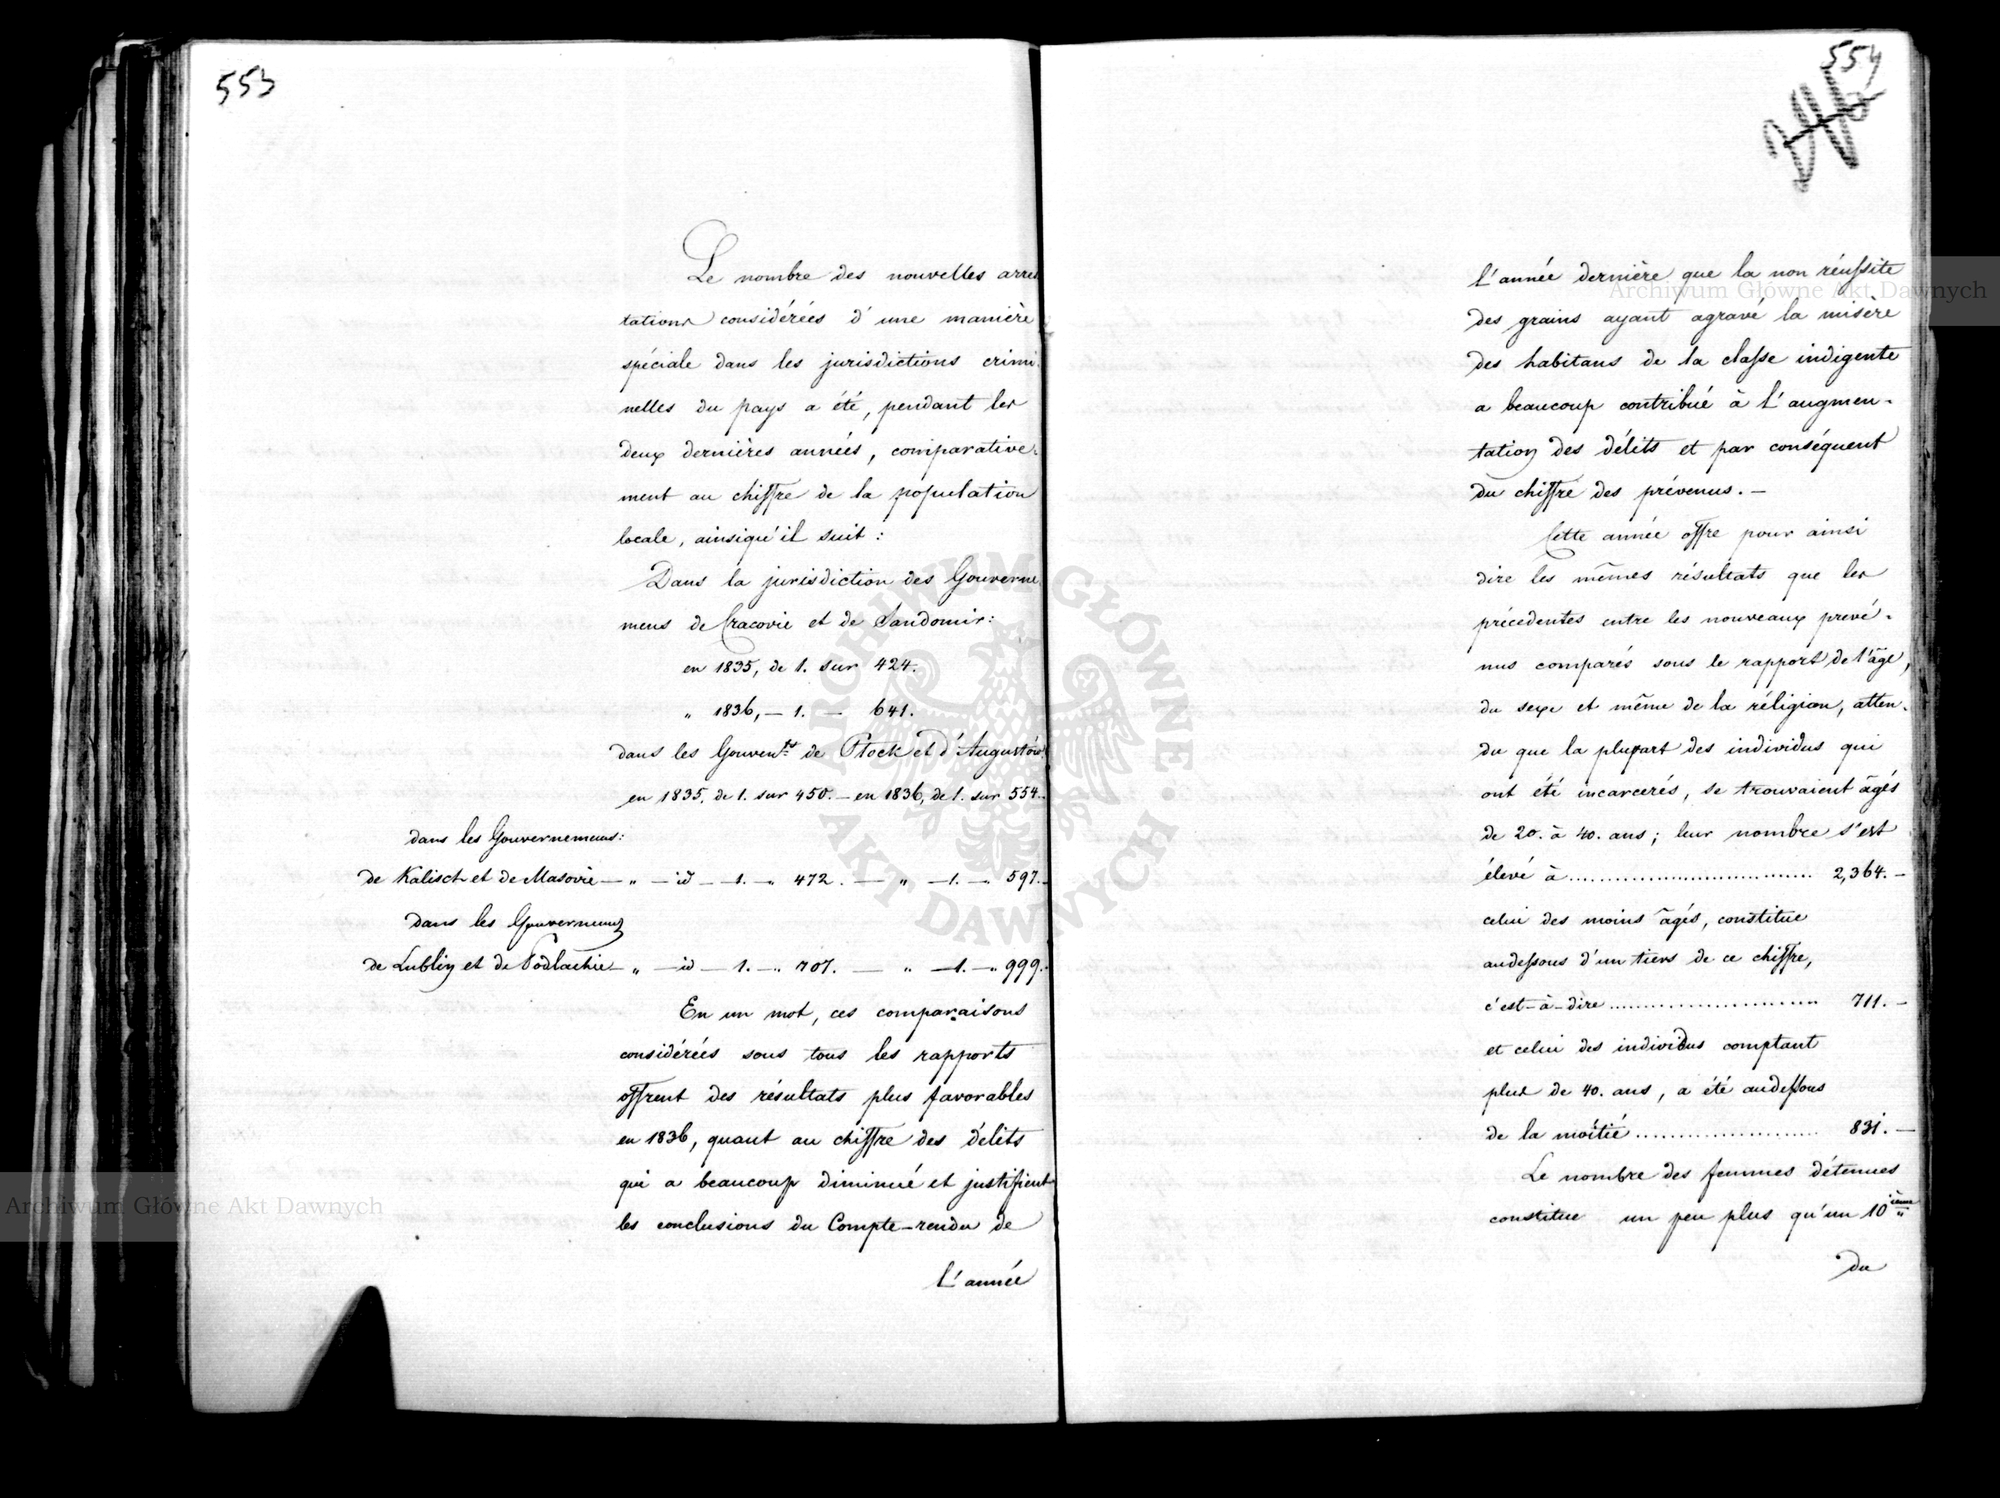 553
Le nombre des nouvelles arres
tations considérées d'une manière
spéciale dans les jurisdictions crimi-
nelles du pays a été, pendant les
deux dernières années, comparative-
ment au chiffre de la population
locale, ainsiqu'il suit :
Dans la jurisdiction des Gouverne
mens de Cracovie et de Sandomir:
en 1835, de 1. sur 424.
" 1836, — 1. — 641.
dans les Gouvern.ts de Plock et d'Augustów.
en 1835, de 1. sur 450. — en 1836, de 1. sur 554.
dans les Gouvernemens:
de Kalisch et de Masovie — " — id — 1. — " 472. — " — 1. — " 597. —
dans les Gouvernemens
de Lublin et de Podlachie — " — id — 1. — " 707. — " — 1. — " 999. —
En un mot, ces comparaisons
considérées sous tous les rapports
offrent des résultats plus favorables
en 1836, quant au chiffre des délits
qui a beaucoup diminué et justifient
les conclusions du Compte-rendu de
l'année
554
l'année dernière que la non réussite
des grains ayant agravé la misère
des habitans de la classe indigente
a beaucoup contribué à l'augmen-
tation des délits et par conséquent
du chiffre des prévenus. —
Cette année offre pour ainsi
dire les mêmes résultats que les
précedentes entre les nouveaux prevé-
nus comparés sous le rapport de l'âge,
du sexe et même de la réligion, atten-
du que la plupart des individus qui
ont été incarcerés, se trouvaient âgés
de 20. à 40. ans ; leur nombre s'est
élevé à .............................. 2,364. —
celui des moins âgés, constitue
audessous d'un tiers de ce chiffre,
c'est-à-dire .......................... 711. —
et celui des individus comptant
plus de 40. ans, a été audessous
de la moitié ....................... 831. —
Le nombre des femmes détenues
constitue un peu plus qu'un 10ième
du
Archiwum Główne Akt Dawnych
Archiwum Główne Akt Dawnych
ARCHIWUM GŁÓWNE AKT DAWNYCH